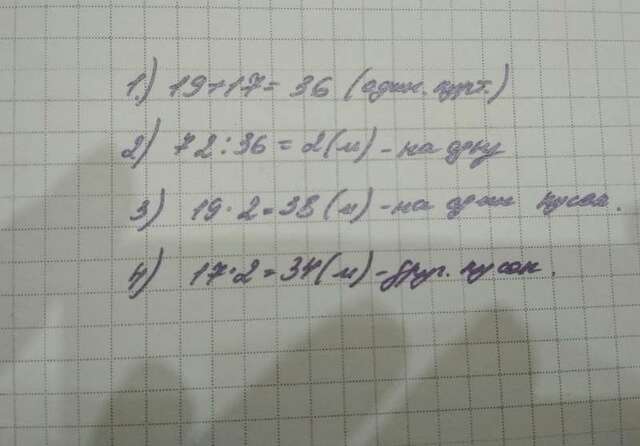 1) 19+17= 36 (один. курт.)
2) 72:36=2(м) - на одну
3) 19·2=38(м) - на один кусок.
4) 17·2=34(м) - друг. кусок.